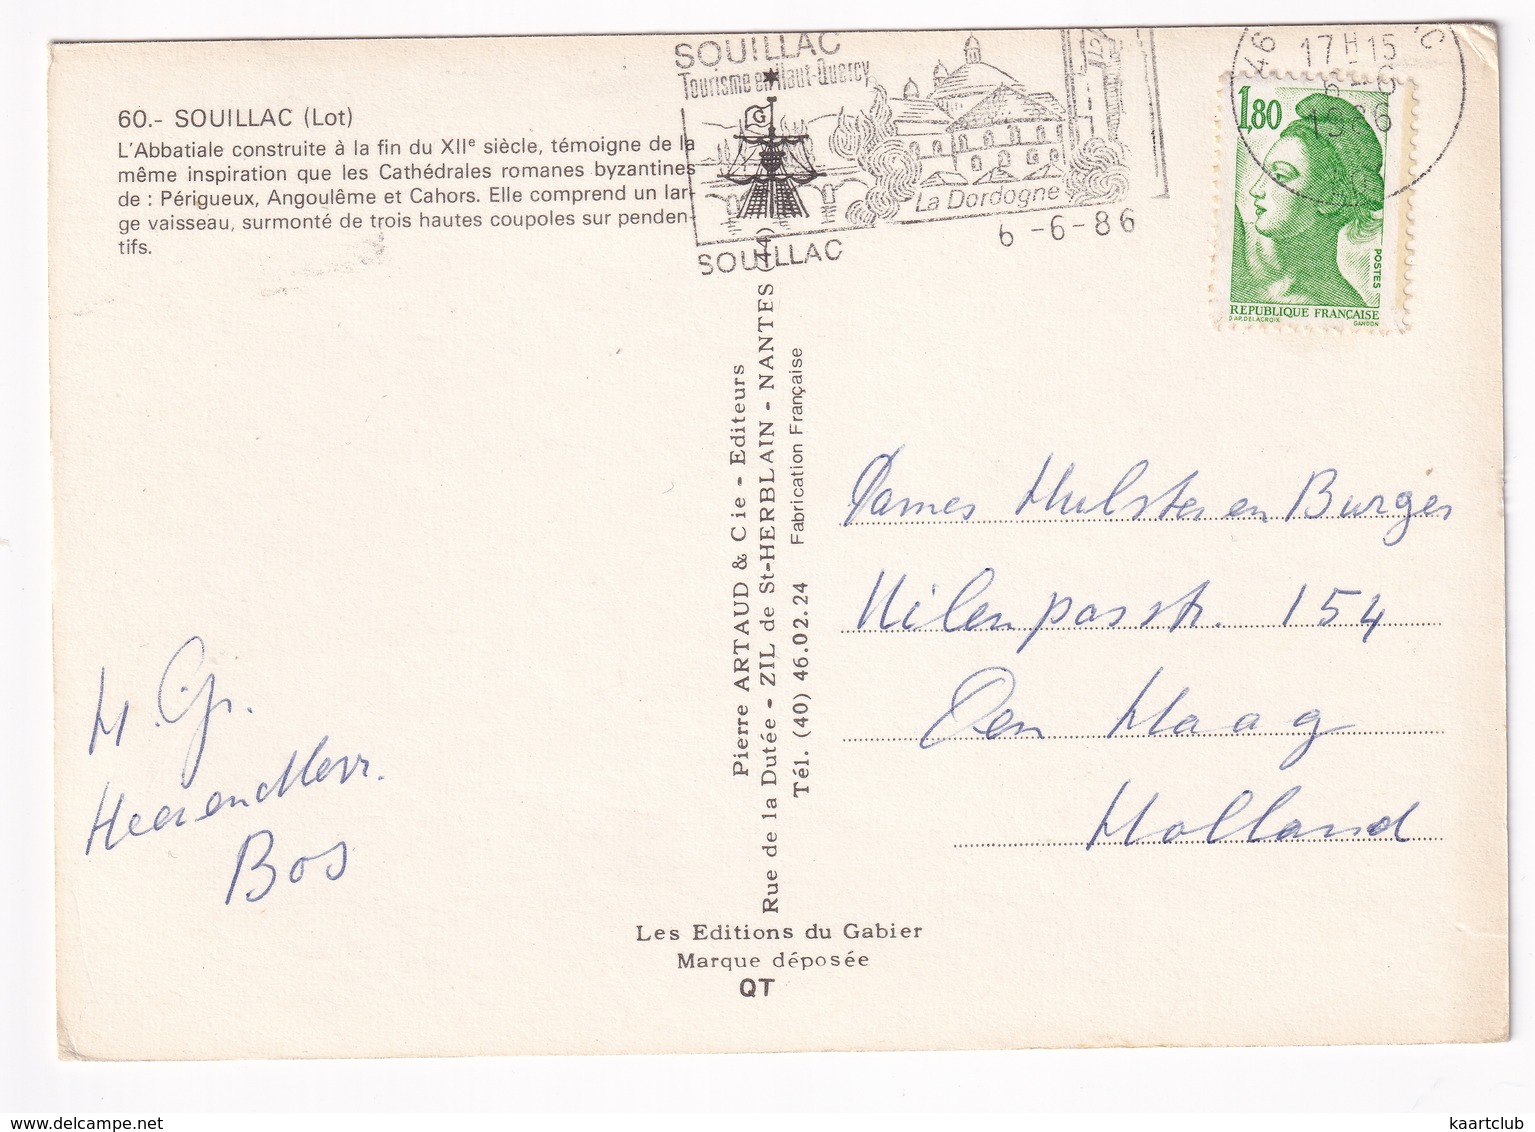 60.- SOUILLAC (Lot)
L'Abbatiale construite à la fin du XIIe siècle, témoigne de la
même inspiration que les Cathédrales romanes byzantines
de : Périgueux, Angoulême et Cahors. Elle comprend un lar-
ge vaisseau, surmonté de trois hautes coupoles sur penden-
tifs.
SOUILLAC
Tourisme en Haut-Quercy
La Dordogne
SOUILLAC
6-6-86
46
17H15
6-6
1986
1,80
POSTES
REPUBLIQUE FRANÇAISE
D'AP. DELACROIX
GANDON
Pierre ARTAUD & Cie - Editeurs
Rue de la Dutée - ZIL de St-HERBLAIN - NANTES (44)
Tél. (40) 46.02.24 Fabrication Française
Dames Hulster en Burger
Nilenpasstr. 154
Den Haag
Holland
H. Gr.
Heer en Mevr.
Bos
Les Editions du Gabier
Marque déposée
QT
kaartclub